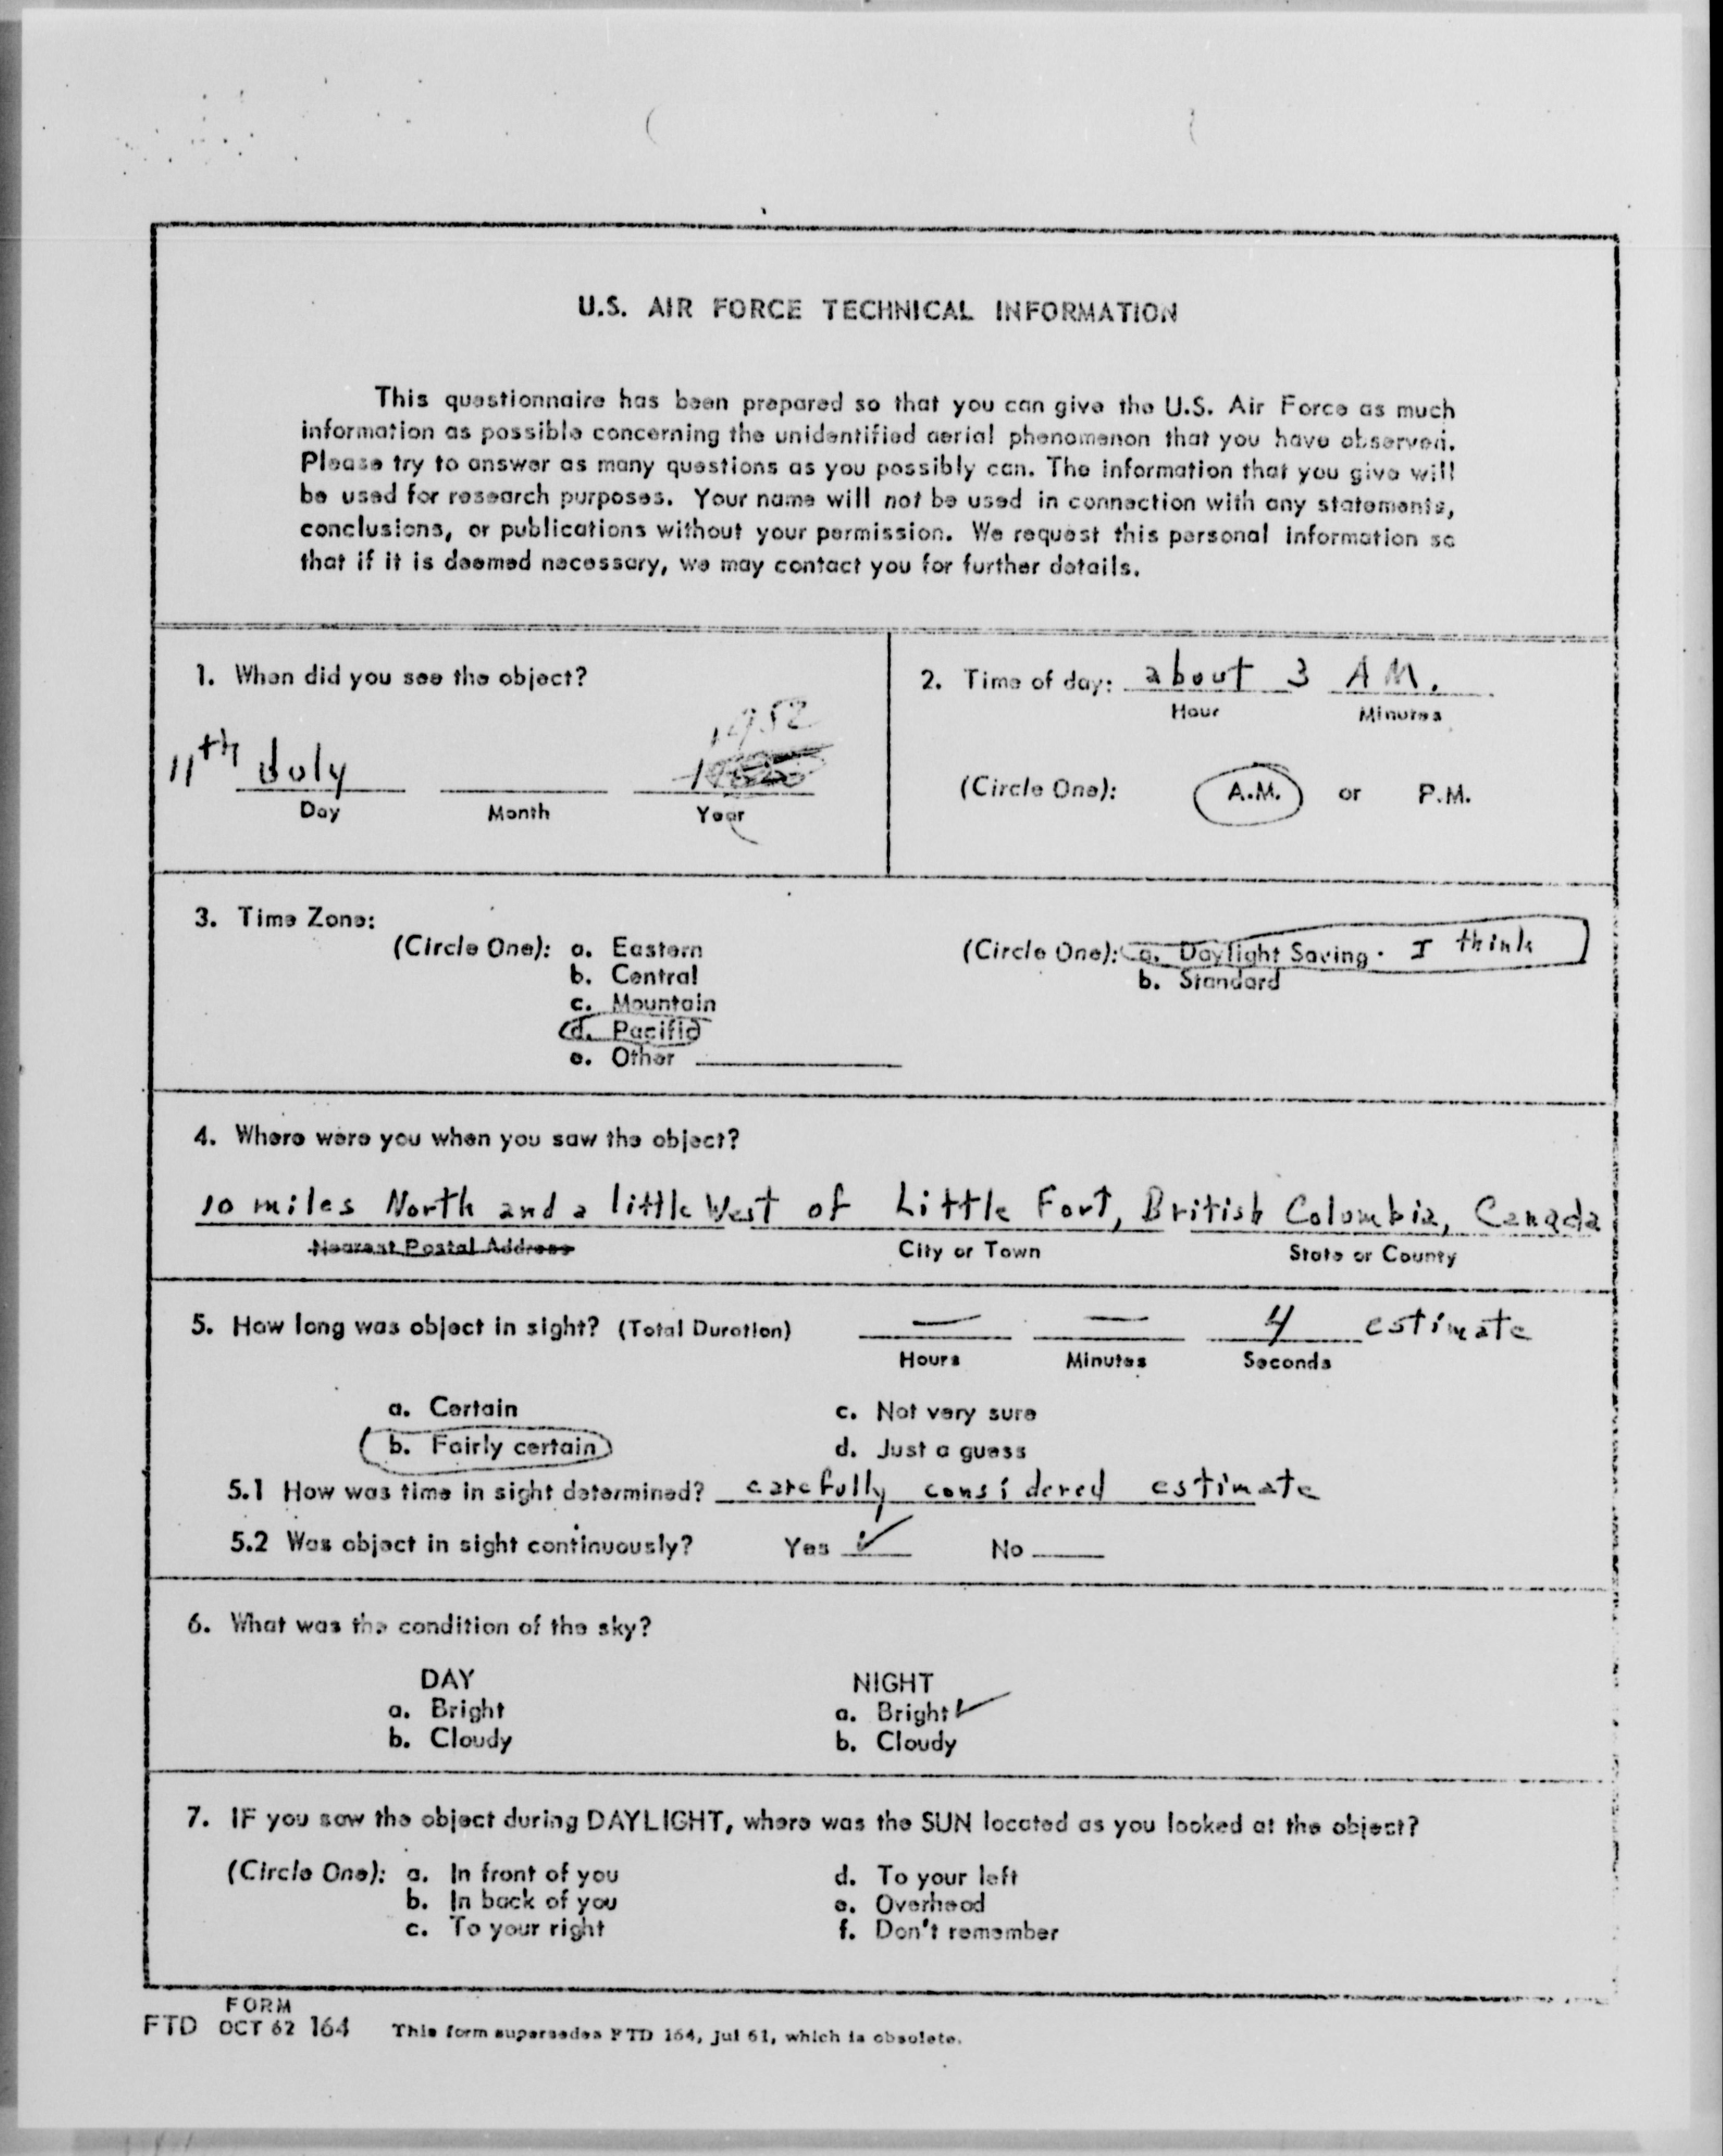 U.S. AIR FORCE TECHNICAL INFORMATION
This questionnaire has been prepared so that you can give the U.S. Air Force as much
information as possible concerning the unidentified aerial phenomenon that you have observed.
Please try to answer as many questions as you possibly can. The information that you give will
be used for research purposes. Your name will not be used in connection with any statements,
conclusions, or publications without your permission. We request this personal information so
that if it is deemed necessary, we may contact you for further details.
1. When did you see the object?
1952
11th July
Day Month Year
2. Time of day: about 3 AM.
Hour Minutes
(Circle One): A.M. or P.M.
3. Time Zone:
(Circle One): a. Eastern
b. Central
c. Mountain
d. Pacific
e. Other
(Circle One): a. Daylight Saving. I think
b. Standard
4. Where were you when you saw the object?
10 miles North and a little West of Little Fort, British Columbia, Canada
Nearest Postal Address City or Town State or County
5. How long was object in sight? (Total Duration) — — 4 estimate
Hours Minutes Seconds
a. Certain c. Not very sure
b. Fairly certain d. Just a guess
5.1 How was time in sight determined? carefully considered estimate
5.2 Was object in sight continuously? Yes ✓ No
6. What was the condition of the sky?
DAY NIGHT
a. Bright a. Bright ✓
b. Cloudy b. Cloudy
7. IF you saw the object during DAYLIGHT, where was the SUN located as you looked at the object?
(Circle One): a. In front of you d. To your left
b. In back of you e. Overhead
c. To your right f. Don't remember
FORM
FTD OCT 62 164 This form supersedes FTD 164, Jul 61, which is obsolete.